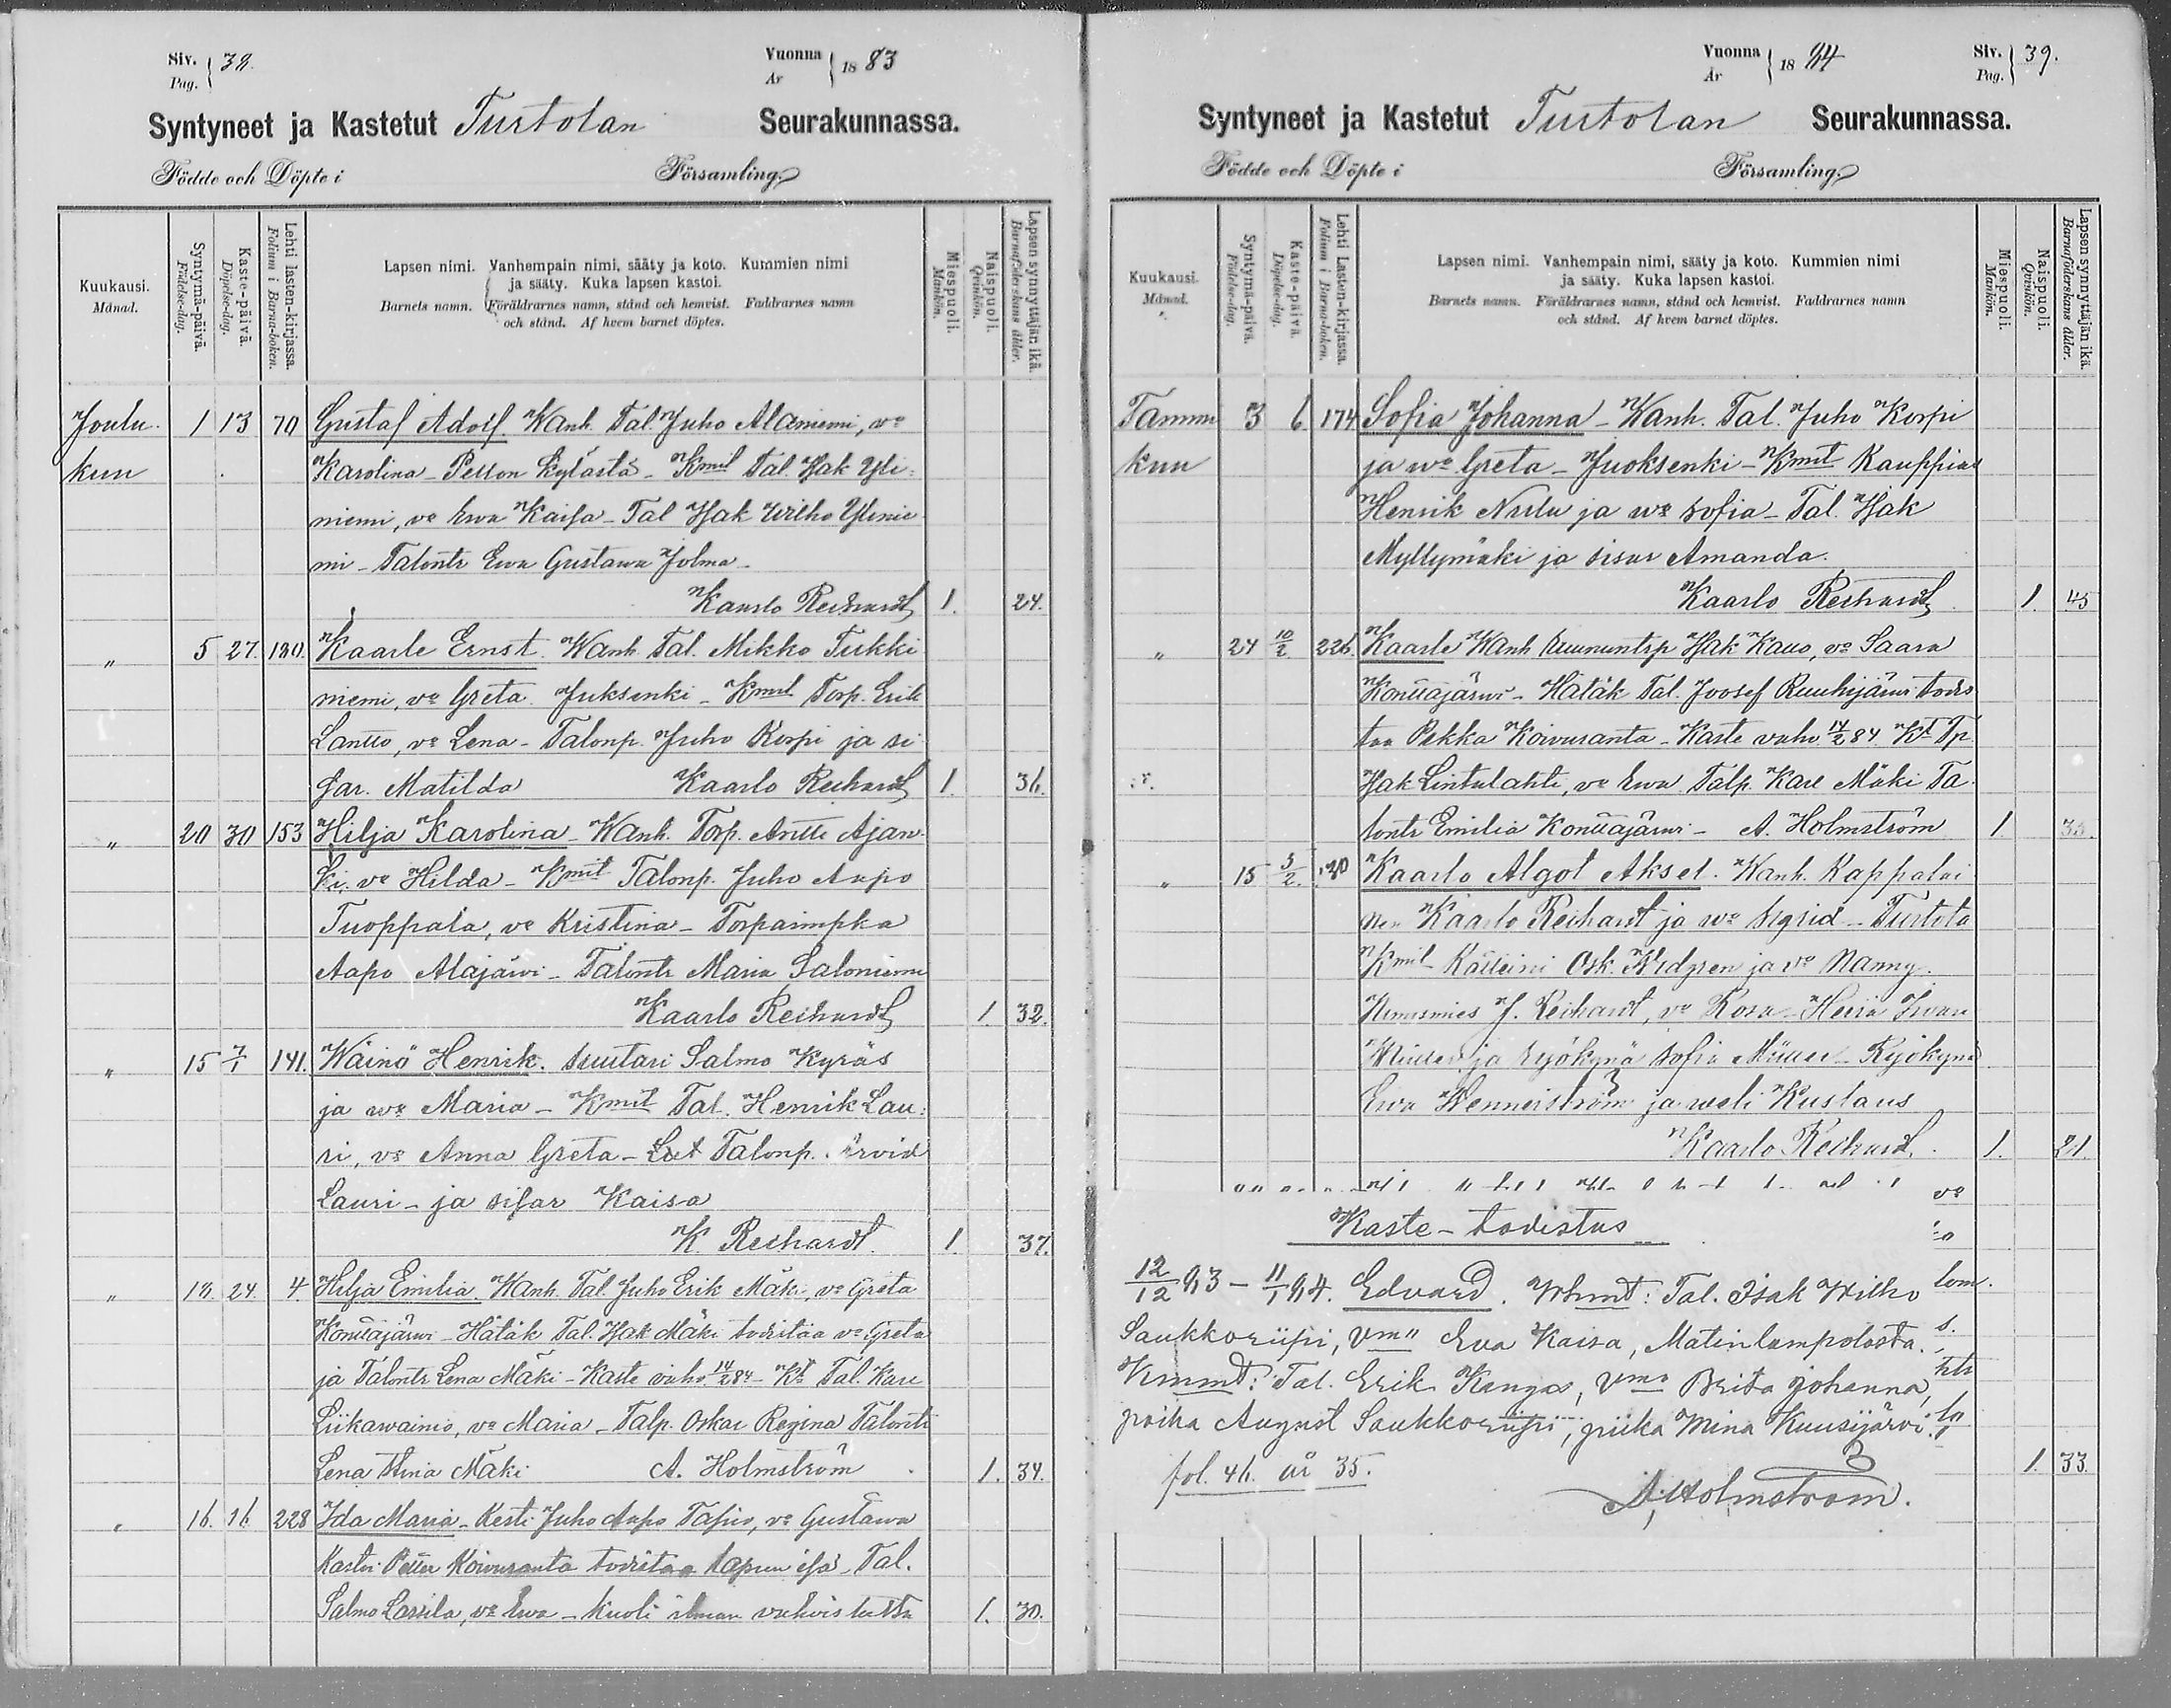 Siv. Pag. 38.
Vuonna År 1883
Syntyneet ja Kastetut Turtolan Seurakunnassa.
Födde och Döpte i Församling.
Kuukausi. Månad.
Syntymä-päivä. Födelse-dag.
Kaste-päivä. Döpelse-dag.
Lehti lasten-kirjassa. Folium i Barna-boken.
Lapsen nimi. Vanhempain nimi, sääty ja koto. Kummien nimi
ja sääty. Kuka lapsen kastoi.
Barnets namn. Föräldrarnes namn, stånd och hemvist. Faddrarnes namn
och stånd. Af hvem barnet döptes.
Miespuoli. Mankön.
Naispuoli. Qvinkön.
Lapsen synnyttäjän ikä. Barnaföderskans ålder.
Joulu 1 13 70 Gustaf Adolf. Wanh. Tal. Juho Alaniemi, vo
kuu Karolina - Pellon kylästä - Kmit Tal. Isak Yli:
niemi, vo Ewa Kaisa - Tal Isak Wilho Ylinie
mi - Talontr Ewa Gustawa Jolma -
Kaarlo Reihardt 1. 24.
" 5 27. 180. Kaarle Ernst. Wanh. Tal. Mikko Turkki
niemi, vo Greta Juksenki - Kmit Torp. Erik
Lantto, vo Lena - Talonp. Juho Korpi ja si
sar. Matilda Kaarlo Reihardt 1. 36.
" 20 30 153 Hilja Karolina - Wanh. Torp. Antti Ajan
ki. vo Hilda - Kmit Talonp. Juho Aapo
Tuoppala, vo Kristina - Torpainpka
Aapo Alajärwi - Talontr Maria Saloniemi
Kaarlo Reihardt 1. 32.
" 15 7/1 141. Wäinö Henrik. Suutari Salmo Kyräs
ja wo Maria - Kmit Tal. Henrik Lau:
ri, vo Anna Greta - Talonp. Arvid
Lauri - ja sisar Kaisa
K. Reihardt. 1. 37.
" 18. 24. 4. Hilja Emilia. Wanh. Tal. Juho Erik Mäki, vo Greta
Konttajärwi - Hätäk Tal. Isak Mäki todistaa vo Greta
ja Talontr Lena Mäki - Kaste vahv. 14/2 84 - Kt Tal. Kare
Liikawainio, vo Maria - Talp. Oskar Regina Talontr
Lena Stina Mäki A. Holmström 1. 34.
" 16. 16. 228 Ida Maria - Kesti Juho Aapo Tapio, vo Gustawa
Kastoi Petter Koivuranta todistaa lapsen isä - Tal.
Salmo Lassila, vo Ewa - kuoli ilman vahvistusta 1. 30.
Vuonna År 1884
Siv. Pag. 39.
Syntyneet ja Kastetut Turtolan Seurakunnassa.
Födde och Döpte i Församling.
Kuukausi. Månad.
Syntymä-päivä. Födelse-dag.
Kaste-päivä. Döpelse-dag.
Lehti Lasten-kirjassa. Folium i Barna-boken.
Lapsen nimi. Vanhempain nimi, sääty ja koto. Kummien nimi
ja sääty. Kuka lapsen kastoi.
Barnets namn. Föräldrarnes namn, stånd och hemvist. Faddrarnes namn
och stånd. Af hvem barnet döptes.
Miespuoli. Mankön.
Naispuoli. Qvinkön.
Lapsen synnyttäjän ikä. Barnaföderskans ålder.
Tammi 3 6. 174 Sofia Johanna - Wanh. Tal. Juho Korpi
kuu ja wo Greta - Juoksenki - Kmit Kauppias
Henrik Nulu ja wo Sofia - Tal. Isak
Myllymäki ja sisar Amanda.
Kaarlo Reihardt 1. 45
" 24 10/2 226. Kaarle Wanh Isak Kaus, vo Saara
Konttajärwi - Hätäk Tal. Joosef Ruuhijärwi todis
taa Pekka Koivuranta - Kaste vahv 14/2 84. Kt Tp
Isak Lintulahti, vo Ewa Talp. Kare Mäki Ta
lontr Emilia Konttajärwi - A. Holmström 1. 35.
" 15 3/2. Kaarlo Algot Aksel. Wanh. Kappalai
nen Kaarlo Reihardt ja wo Sigrid - Turtola
Kmit Osk. Widgren ja vo Nanny.
Nimismies J. Reihardt, vo Rosa - Herra
ja ryökynä Sofia Müller - Ryökynä
Ewa Wennerström ja weli Kustaus
Kaarlo Reihardt. 1. 21.
vo
Kaste - todistus
12/12 83 - 11/1 84. Edvard. Whmt: Tal. Isak Wilho
Saukkoriipi, Vmo Eva Kaisa, Matinlompolosta.
Kmmt: Tal. Erik Kangas, Vmo Brita Johanna,
poika August Saukkoriipi, piika Mina Kuusijärvi.
fol. 46. år 35. 1. 33.
A. Holmström.